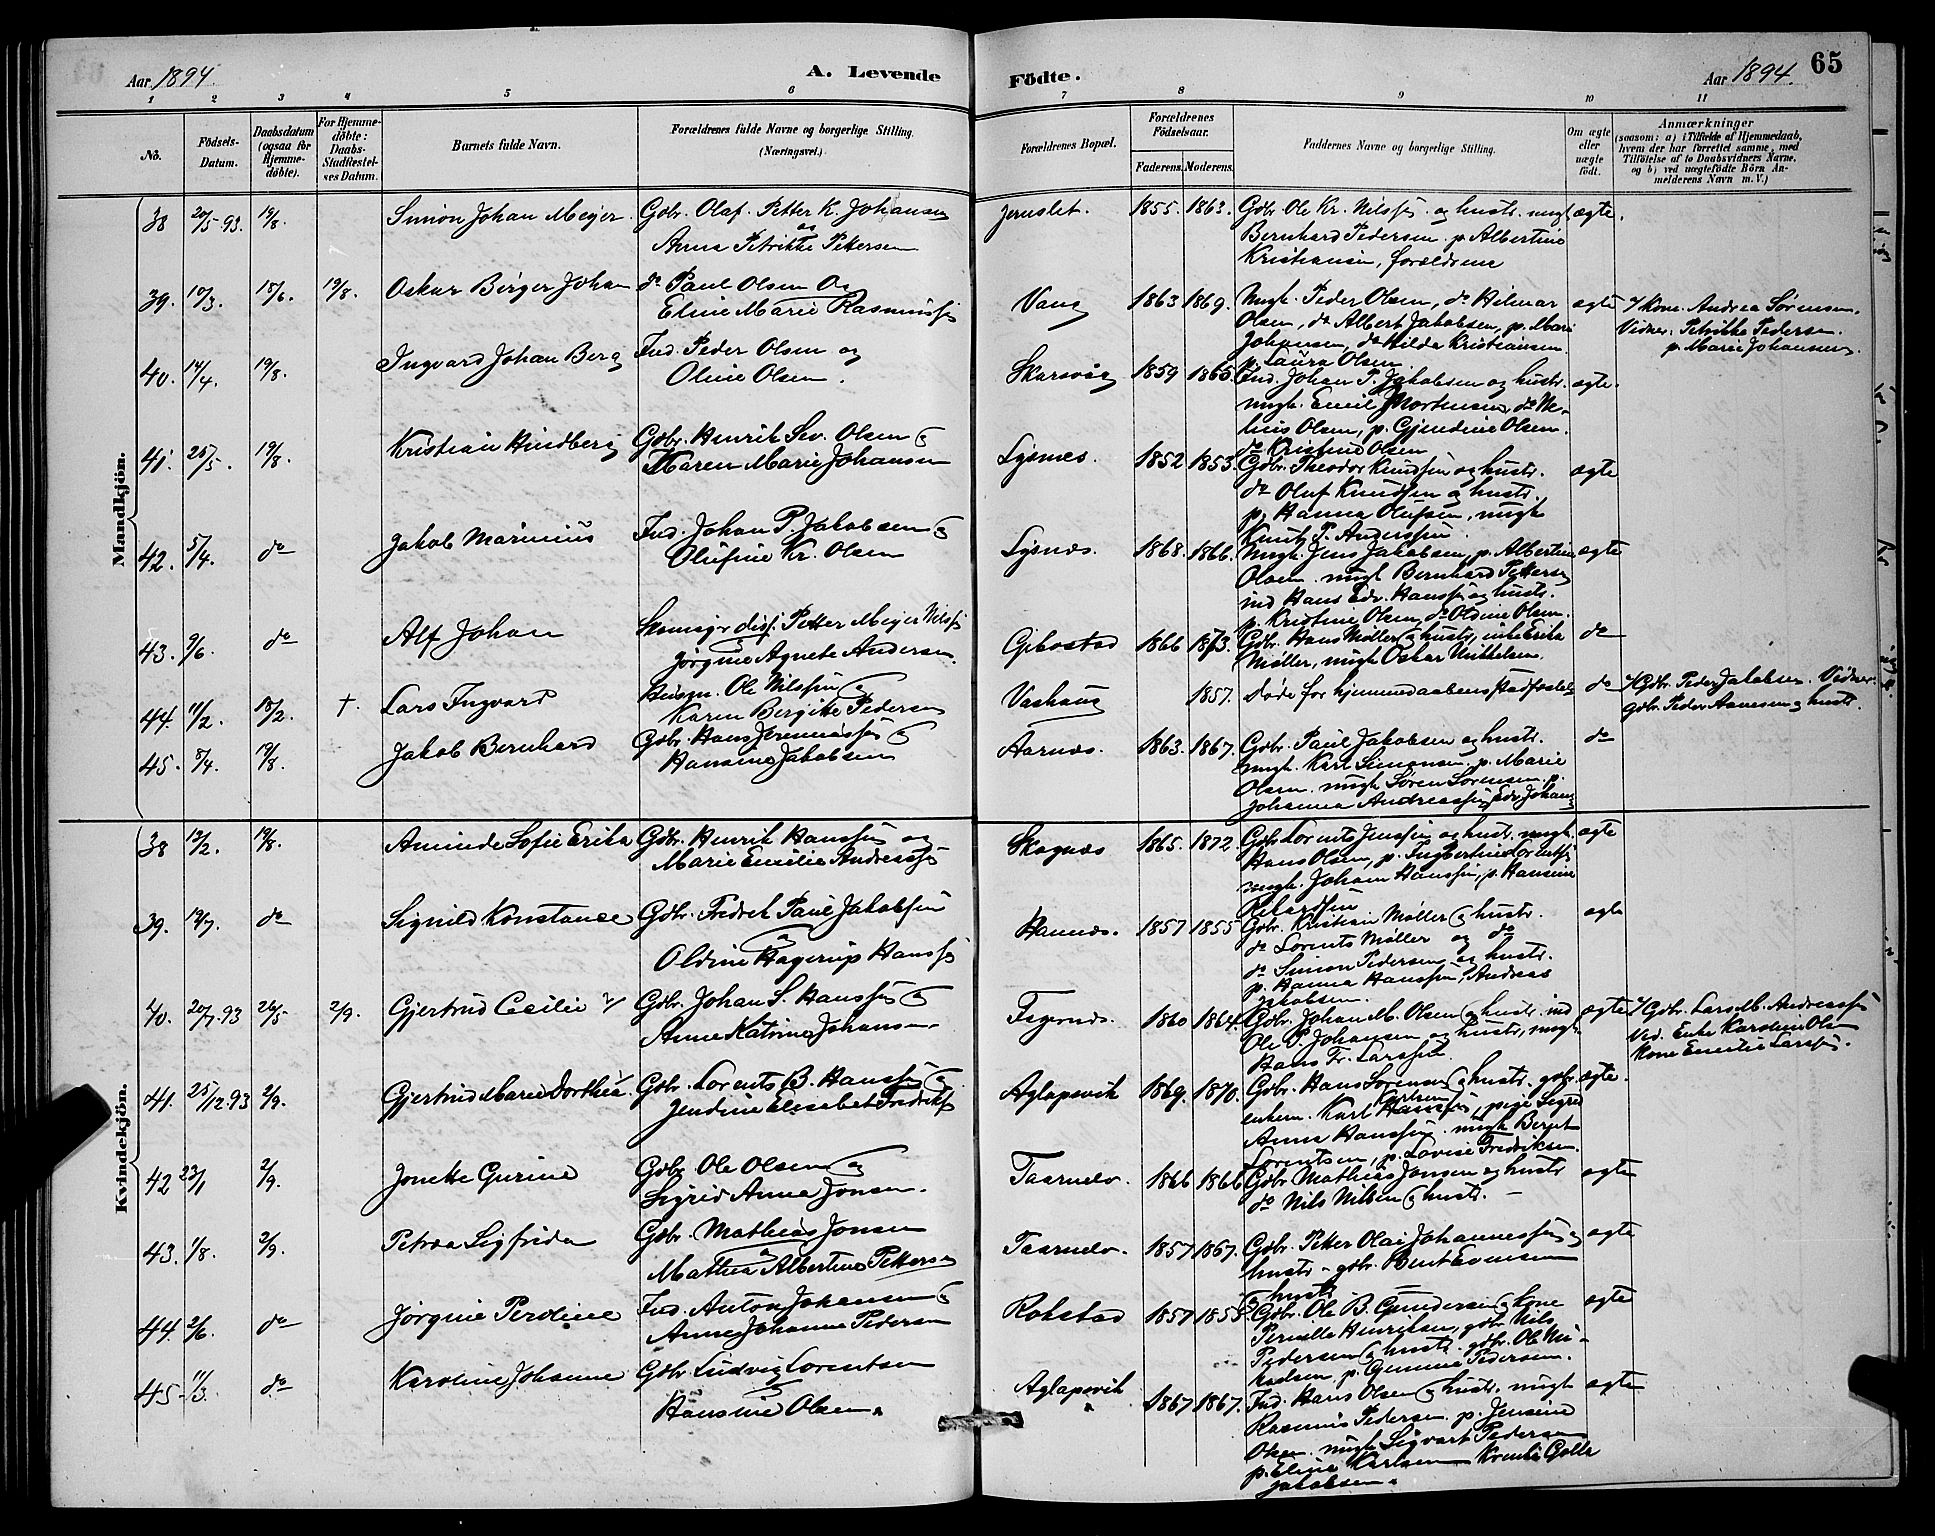 Aar 1894.
A. Levende
Födte.
Aar 1894.
65
1 2 3 4 5 6 7 8 9 10 11
No.
Födsels-
Datum.
Daabsdatum
(ogsaa for
Hjemme-
döbte).
For Hjemme-
döbte:
Daabs-
Stadfestel-
ses Datum.
Barnets fulde Navn.
Forældrenes fulde Navne og borgerlige Stilling.
(Næringsvei.)
Forældrenes Bopæl.
Forældrenes
Födselsaar.
Faderens. Moderens.
Faddernes Navne og borgerlige Stilling.
Om ægte
eller
uægte
födt.
Anmærkninger
(saasom: a) i Tilfælde af Hjemmedaab,
hvem der har forrettet samme, med
Tilföielse af to Daabsvidners Navne,
og b) ved uægtefödte Börn An-
melderens Navn m. V.)
Mandkjön.
38 20/5 93. 19/8. Simon Johan Meyer. Gdbr. Olaf Petter K. Johansen
og
Anna Petrikke Pettersen
1855. 1863. Gdbr Ole Kr. Nilssen og hustr. ungk ægte.
Bernhard Pedersen p. Albertine
Kristiansen, forældrene
39. 10/3. 18/6. 19/8. Oskar Berger Johan do Paul Olsen og
Eline Marie Rasmuss.
Vang 1863 1869. Ungk. Peder Olsen, do Hilmar ægte
Olsen, do Albert Jakobsen, p. Marie
Johansen, do Hilda Kristiansen
p. Laura Olsen.
Kone Andrea Sørensen.
Vidner. Petrikke Pedersen.
p. Marie Johansen.
40. 14/4. 19/8. Ingvard Johan Berg Ind. Peder Olsen og
Oline Olsen.
Skarsvåg 1859 1865. Ind. Johan P. Jakobsen og hustr. ægte.
ungk. Emil Mortensen, do
Olsen, p. Gjendine Olsen.
do Kristine Olsen
41. 25/5. 19/8. Kristian Hindberg Gdbr. Henrik Sev. Olsen og
Karen Marie Johansen
Lysnes. 1852 1853. Gdbr. Theodor Knudsen og hustr. ægte
do Oluf Knudsen og hustr.
p. Hanna Olufsen, ungk
Knut P. Anderssen.
42. 5/4. do Jakob Marinius Ind. Johan P. Jakobsen og
Olufine Kr. Olsen
Lysnæs. 1868. 1866. Ungk. Jens Jakobsen, p. Albertine ægte
Olsen ungk Bernhard Petters.
ind Hans Edv. Hanssen og hustr.
p. Kristine Olsen, do Oldine Olsen.
43. 9/6. do Alf Johan Petter Meyer Nilss.
Jørgine Agnete Andersen.
Gibostad 1866 1873. Gdbr. Hans Møller og hustr, Erika do
Møller, ungk Oskar Mikkelsen.
44. 11/2. 18/2. †. Lars Ingvard Husm. Ole Nilssen og
Karen Bergitte Pedersen
Vashaug 1857. Døde før hjemmedaabens stadfæstels. do Gdbr. Peder Jakobsen. Vidner
gdbr. Peder Arnesen og hustr.
45. 8/4. 19/8. Jakob Bernhard Gdbr. Hans Jeremiass. og
Hansine Jakobsen
Aarnæs. 1863. 1867. Gdbr. Paul Jakobsen og hustr. do
ungk. Karl Simonsen. p. Marie
Olsen. ungk Søren Sørensen. p.
Johanna Andreassen, Edv. Johans.
Kvindekjön.
38 13/2. 19/8. Aminde Sofie Erika Gdbr. Henrik Hanssen og
Marie Emilie Andreass.
Skognæs 1865. 1872. Gdbr Lorents Jenssen og hustr. ungk. ægte
Hans Olsen, p. Ingbertine Lorents.
ungk. Johan Hanssen, p. Hansine
Rikardsen
39. 12/7. do Signild Konstance Gdbr. Fredrik Paul Jakobsen
og
Oldine Hagerup Hanss.
1857 1855 Gdbr. Kristian Møller og hustr. ægte
do Lorents Møller og do
do Simon Pedersen og hustr.
p. Hanna Hanssen, Andreas
Jakobsen.
40. 20/7 93 26/5 2/9. Gjertrud Cecilie Gdbr. Johan S. Hanssen og
Anne Katrine Johansen.
Fagernæs. 1860 1864. Gdbr. Johan M. Olsen og hustr. ind ægte
Ole P. Johansen og hustr, ungk
Hans Fr. Larssen.
Gdbr. Lars M. Andreass.
Vid. Enke Karoline Olsen
Kone Emilie Larss.
41. 25/12 93 2/9. Gjertrud Marie Dorthea. Gdbr. Lorents B. Hanssen og
Jendine Elisabet Fredriks.
Aglapsvik 1869. 1870. Gdbr. Hans Sørensen og hustr. gdbr ægte.
enkem. Karl Karlsen, pige Sigrid
Anna Hanssen. ungk Bernt
Lorentsen, p. Lovise Fredriksen
42 23/1 2/9. Jonette Gurine Gdbr Ole Olsen og
Sigrid Anna Jonsen.
Taarnelv. 1866 1866 Gdbr Mathias Jonsen og hustr ægte
do Nils Nilsen og hustr. –
43. 1/8. 2/9. Petrea Sigfrida Gdbr. Mathias Jonsen
og
Mathea Albertine Petters.
Taarnelv. 1857 1867. Gdbr. Petter Olai Johannessen og ægte
hustr – gdbr. Bernt Evensen
og hustr
44. 2/6. do Jørgine Perdine Ind. Anton Johansen og
Anne Johanna Pedersen
Rokstad 1857 1858 Gdbr. Ole B. Gundersen og kone ægte
Pernella Henriksen, gdbr. Nils
Pedersen og hustr. gdbr. Ole
p. Pedersen.
45. 11/3. do Karoline Johanne Gdbr Ludvig Lorentsen
og
Hansine Olsen.
Aglapsvik 1867 1867. Ind. Hans Olsen og hustr. ungk ægte
Rasmus Pedersen. p. Jensine
Olsen. ungk Sigvart Pedersen
p. Eline Karlsen
Jakobsen.